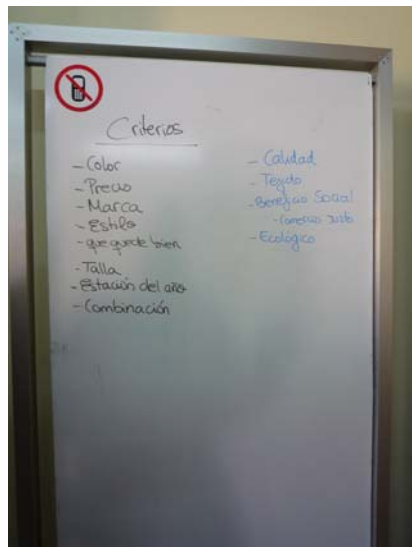 Criterios
- Color
- Precio
- Marca
- Estilo
- que quede bien
- Talla
- Estación del año
- Combinación
- Calidad
- Tejido
- Beneficio Social
- Comercio Justo
- Ecológico